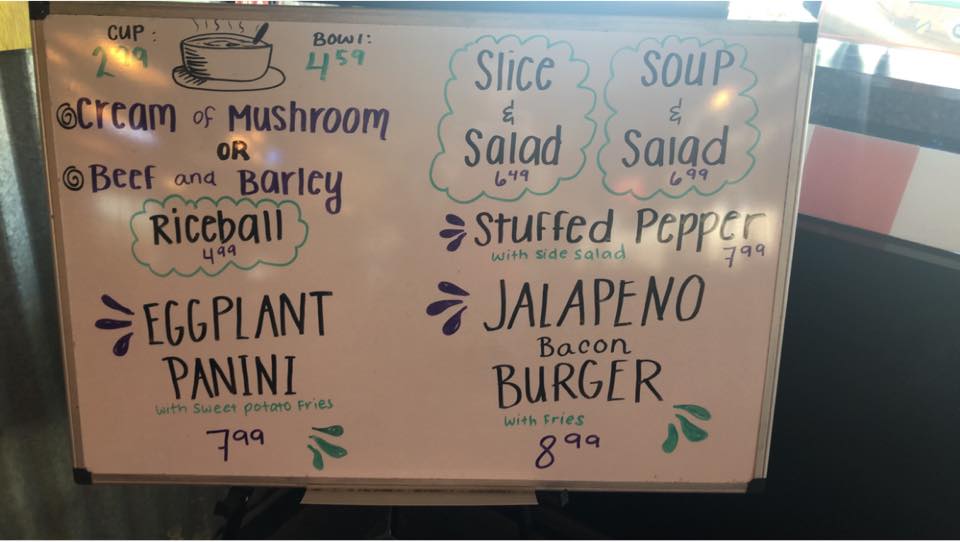 CUP:
2.99
BOWL:
4.59
Cream of Mushroom
OR
Beef and Barley
Riceball
4.99
EGGPLANT
PANINI
with sweet potato Fries
7.99
Slice
&
Salad
6.49
SOUP
&
Salad
6.99
Stuffed Pepper
with side salad
7.99
JALAPENO
Bacon
BURGER
with Fries
8.99